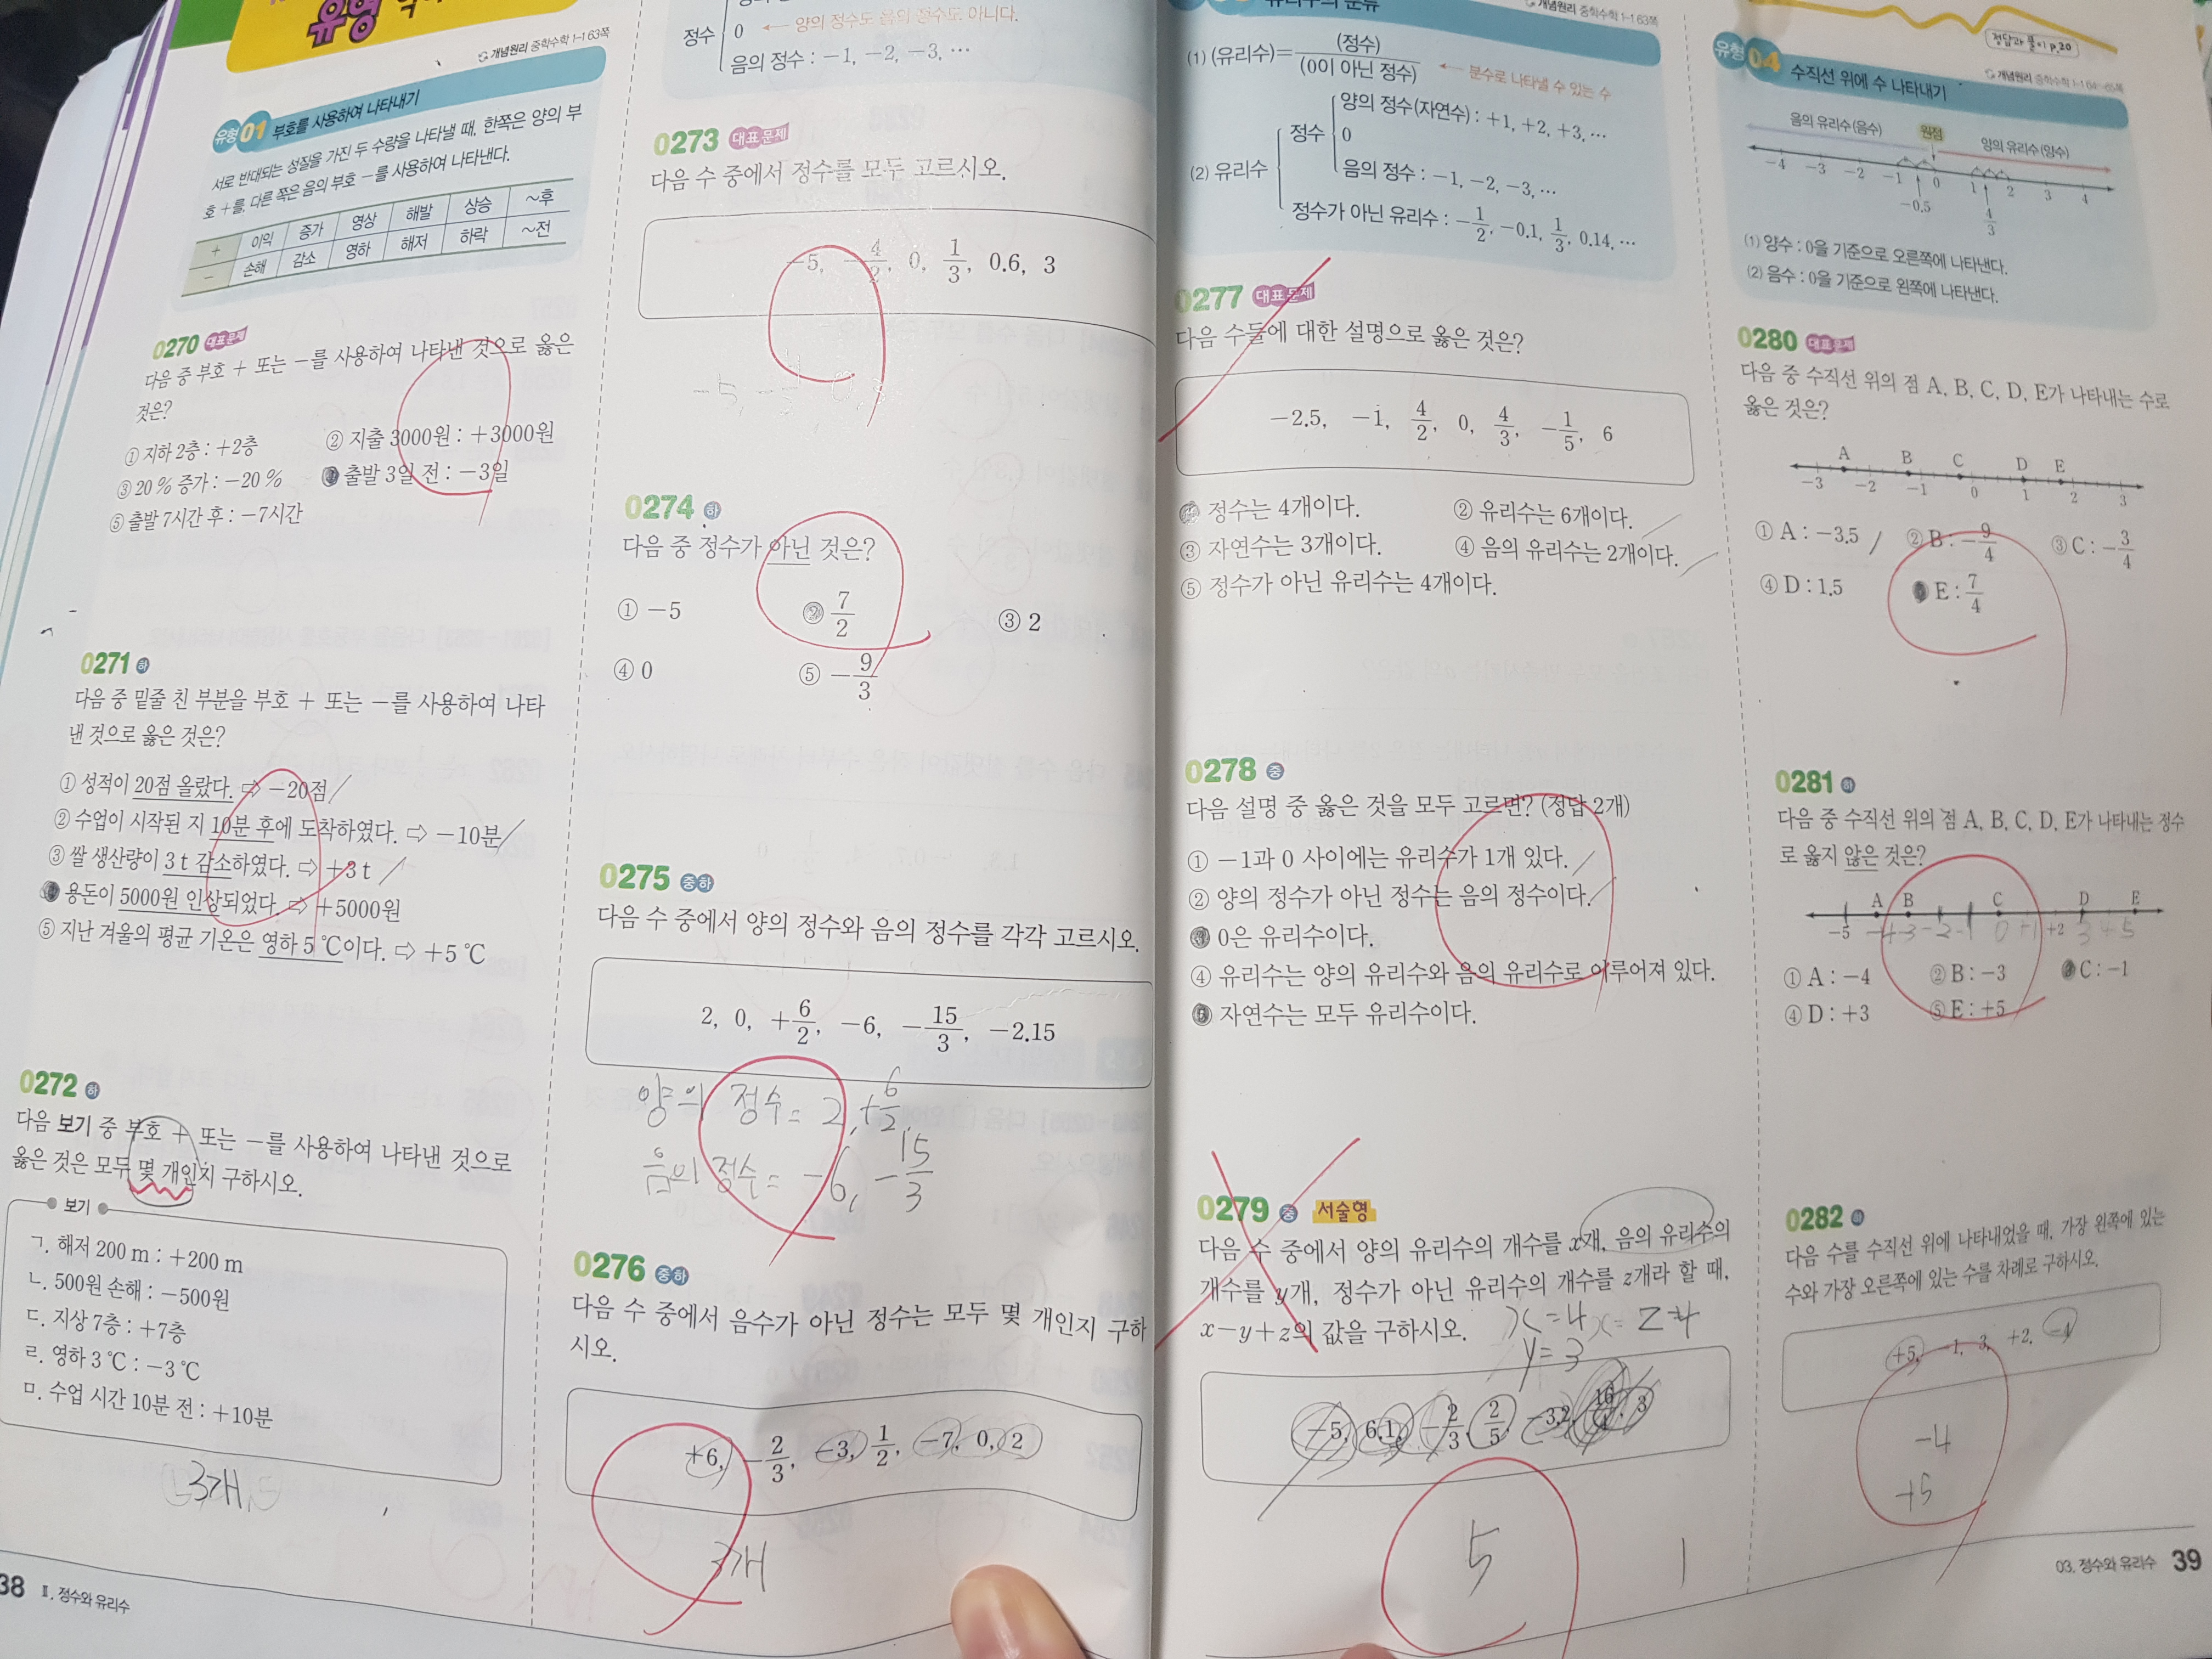 유형
개념원리 중학수학 1-1 63쪽
유형 01 부호를 사용하여 나타내기
서로 반대되는 성질을 가진 두 수량을 나타낼 때, 한쪽은 양의 부
호 +를, 다른 쪽은 음의 부호 -를 사용하여 나타낸다.
+ 이익 증가 영상 해발 상승 ~후
- 손해 감소 영하 해저 하락 ~전
0270 대표문제
다음 중 부호 + 또는 -를 사용하여 나타낸 것으로 옳은
것은?
① 지하 2층 : +2층 ② 지출 3000원 : +3000원
③ 20 % 증가 : -20 % ④ 출발 3일 전 : -3일
⑤ 출발 7시간 후 : -7시간
0271 하
다음 중 밑줄 친 부분을 부호 + 또는 -를 사용하여 나타
낸 것으로 옳은 것은?
① 성적이 20점 올랐다. ⇨ -20점
② 수업이 시작된 지 10분 후에 도착하였다. ⇨ -10분
③ 쌀 생산량이 3 t 감소하였다. ⇨ +3 t
④ 용돈이 5000원 인상되었다. ⇨ +5000원
⑤ 지난 겨울의 평균 기온은 영하 5 ℃이다. ⇨ +5 ℃
0272 하
다음 보기 중 부호 + 또는 -를 사용하여 나타낸 것으로
옳은 것은 모두 몇 개인지 구하시오.
보기
ㄱ. 해저 200 m : +200 m
ㄴ. 500원 손해 : -500원
ㄷ. 지상 7층 : +7층
ㄹ. 영하 3 ℃ : -3 ℃
ㅁ. 수업 시간 10분 전 : +10분
3개
38 Ⅱ. 정수와 유리수
정수
0 ← 양의 정수도 음의 정수도 아니다.
음의 정수 : -1, -2, -3, …
0273 대표문제
다음 수 중에서 정수를 모두 고르시오.
-5, -4/2, 0, 1/3, 0.6, 3
0274 하
다음 중 정수가 아닌 것은?
① -5 ② 7/2 ③ 2
④ 0 ⑤ -9/3
0275 중하
다음 수 중에서 양의 정수와 음의 정수를 각각 고르시오.
2, 0, +6/2, -6, -15/3, -2.15
양의 정수 = 2, +6/2
음의 정수 = -6, -15/3
0276 중하
다음 수 중에서 음수가 아닌 정수는 모두 몇 개인지 구하
시오.
+6, -2/3, -3, 1/2, -7, 0, 2
3개
개념원리 중학수학 1-1 63쪽
(1) (유리수)=(정수)/(0이 아닌 정수) ← 분수로 나타낼 수 있는 수
(2) 유리수
정수
양의 정수(자연수) : +1, +2, +3, …
0
음의 정수 : -1, -2, -3, …
정수가 아닌 유리수 : -1/2, -0.1, 1/3, 0.14, …
0277 대표문제
다음 수들에 대한 설명으로 옳은 것은?
-2.5, -1, 4/2, 0, 4/3, -1/5, 6
① 정수는 4개이다. ② 유리수는 6개이다.
③ 자연수는 3개이다. ④ 음의 유리수는 2개이다.
⑤ 정수가 아닌 유리수는 4개이다.
0278 중
다음 설명 중 옳은 것을 모두 고르면? (정답 2개)
① -1과 0 사이에는 유리수가 1개 있다.
② 양의 정수가 아닌 정수는 음의 정수이다.
③ 0은 유리수이다.
④ 유리수는 양의 유리수와 음의 유리수로 이루어져 있다.
⑤ 자연수는 모두 유리수이다.
0279 중 서술형
다음 수 중에서 양의 유리수의 개수를 x개, 음의 유리수의
개수를 y개, 정수가 아닌 유리수의 개수를 z개라 할 때,
x-y+z의 값을 구하시오.
x=4 z=4
y=3
-5, 6.1, -2/3, 2/5, -3.2, 16/4, 3
5
정답과 풀이 p.20
유형 04 수직선 위에 수 나타내기
음의 유리수(음수) 원점 양의 유리수(양수)
-4 -3 -2 -1 0 1 2 3 4
-0.5 4/3
(1) 양수 : 0을 기준으로 오른쪽에 나타낸다.
(2) 음수 : 0을 기준으로 왼쪽에 나타낸다.
0280 대표문제
다음 중 수직선 위의 점 A, B, C, D, E가 나타내는 수로
옳은 것은?
A B C D E
-3 -2 -1 0 1 2 3
① A : -3.5 ② B : -9/4 ③ C : -3/4
④ D : 1.5 ⑤ E : 7/4
0281 하
다음 중 수직선 위의 점 A, B, C, D, E가 나타내는 정수
로 옳지 않은 것은?
A B C D E
-5 -4 -3 -2 -1 0 +1 +2 3 4 5
① A : -4 ② B : -3 ③ C : -1
④ D : +3 ⑤ E : +5
0282 하
다음 수를 수직선 위에 나타내었을 때, 가장 왼쪽에 있는
수와 가장 오른쪽에 있는 수를 차례로 구하시오.
+5, -1, 3, +2, -4
-4
+5
03. 정수와 유리수 39